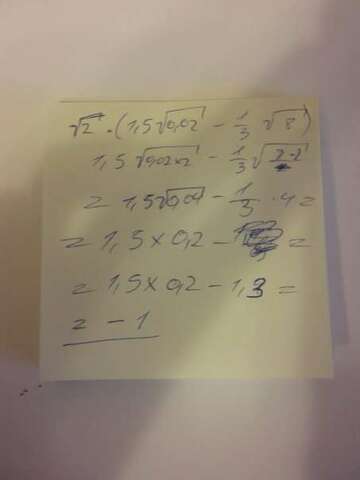 √2 · (1,5√0,02 - 1/3 √8)
1,5 √0,02×2 - 1/3 √
= 1,5√0,04 - 1/3 · 4 =
= 1,5 × 0,2 - =
= 1,5 × 0,2 - 1,3 =
= - 1